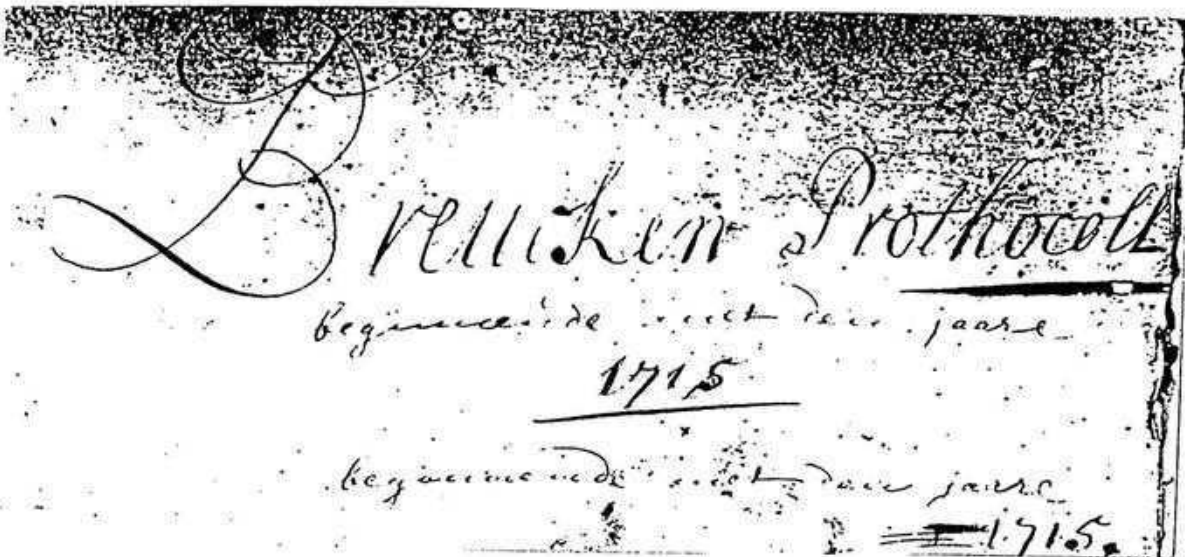 Breuken Prothocoll
beginnende met den jaare
1715
beginnende met den jaare
1715.